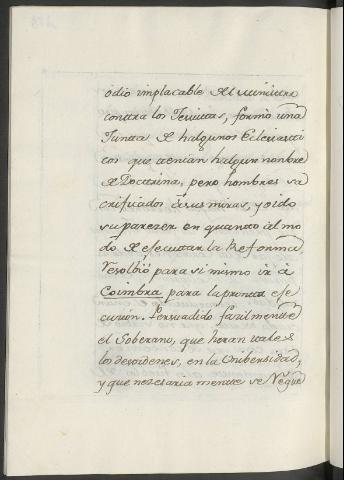 odio implacable del ministro
contra los Jesuitas, formò una
Junta de halgunos Eclesiasti
cos que tenian halgun nonbre
de Doctrina, pero hombres sa
crificados à sus miras, y oido
su parezer en quanto al mo
do de ejecutar la Reforma
Resolbiò para si mismo ir à
Coimbra para la pronta eje
cusion. Persuadido facilmente
el Soberano, que heran tales
los desordenes, en la Unibersidad,
y que nezesaria mente se